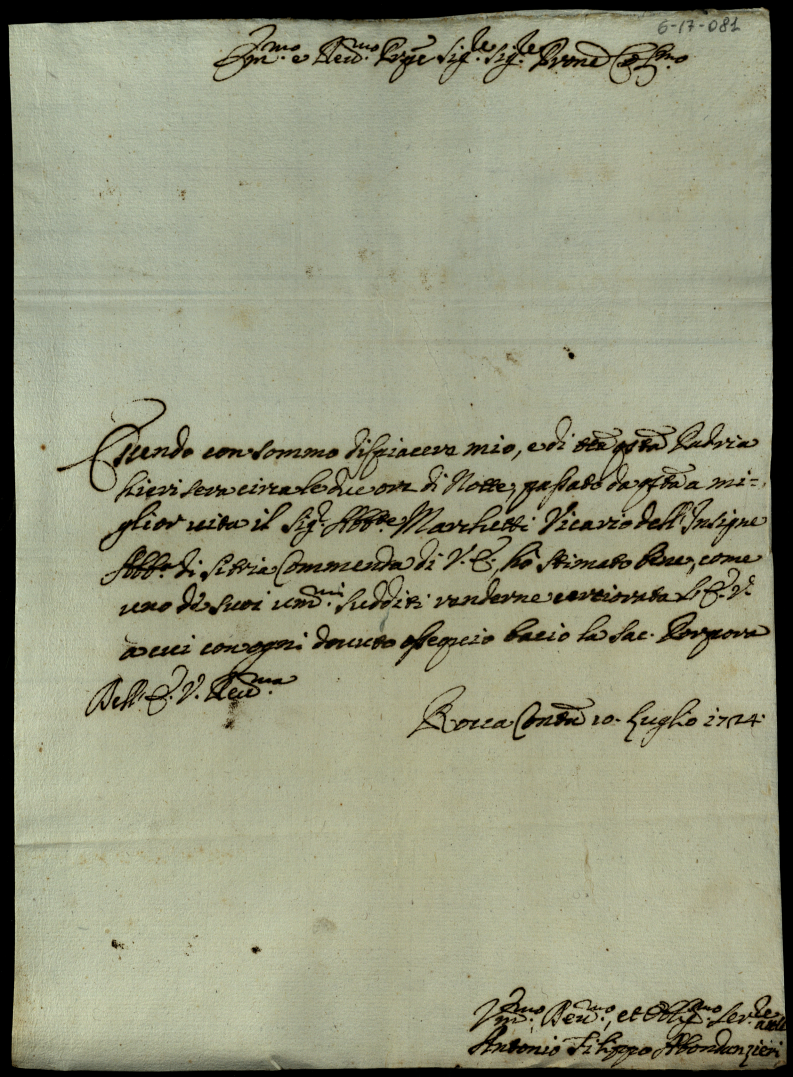 6-17-081
Em.mo e Rev.mo Prpe Sig.re Sig.re Prone Col.mo
Essendo con sommo dispiacere mio, e di tta qsta Padria
hieri sera circa le due ore di Notte, passato da qsta a mi=
glior vita il Sig.r Abb.te Marchetti Vicario dell'Insigne
Abb.a di Sittia Commenda di V. E., hò stimato bene, come
uno de suoi um.mi sudditi renderne certiorata l'E. V.
a cui con ogni dovuto ossequio bacio la Sac. Porpora
Dell'E. V. Rev.ma
Rocca Contra 10. Luglio 1724.
Um.mo, Dev.mo, et Obblig.mo Ser.re
Antonio Filippo Abondanzieri